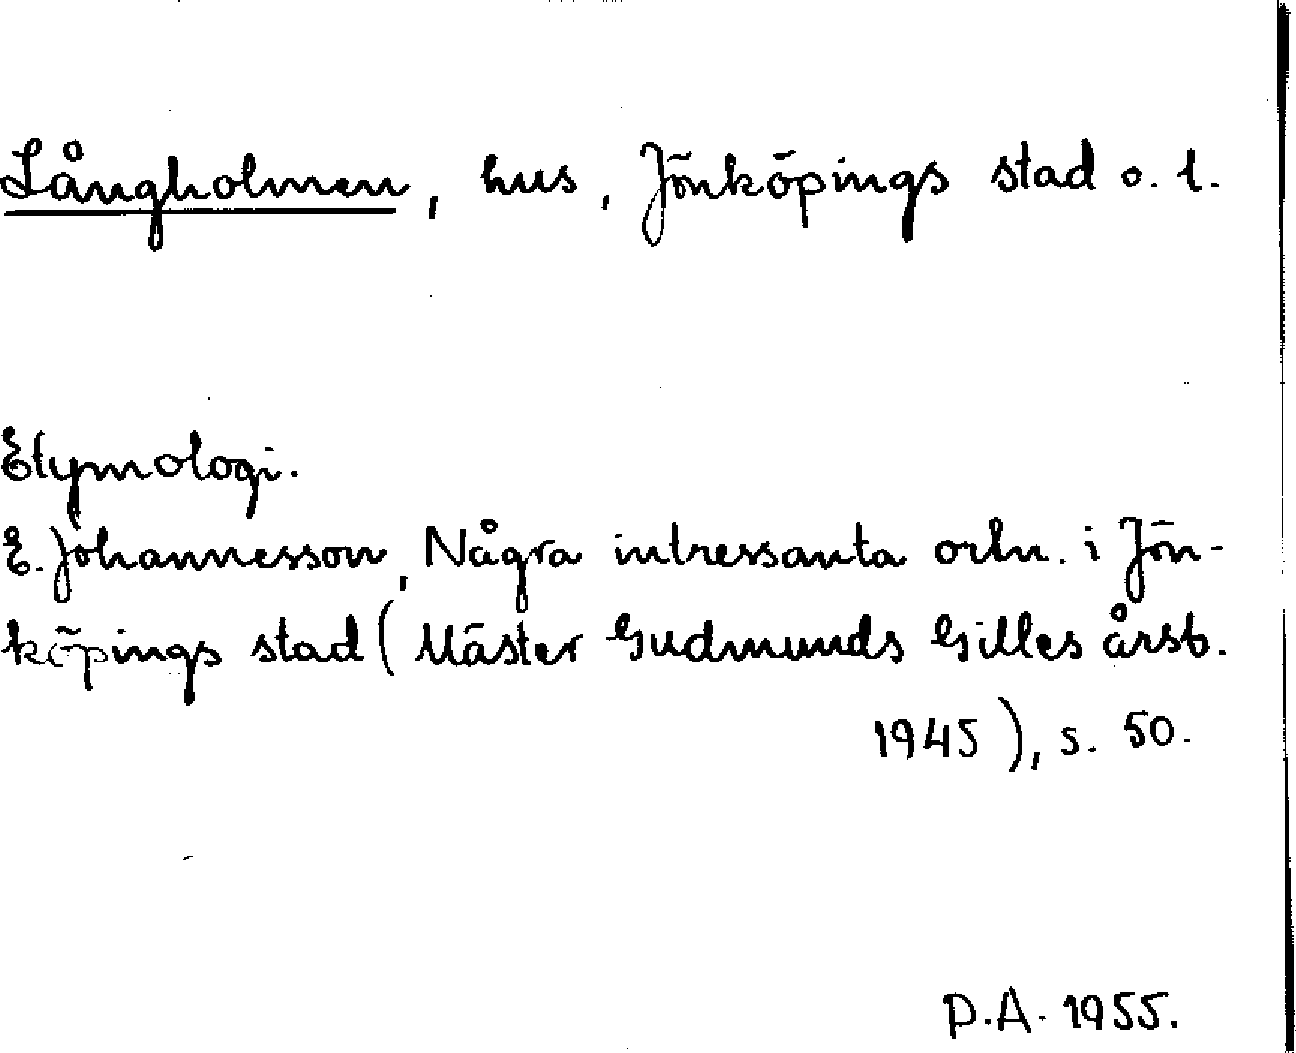 Långholmen, hus, Jönköpings stad o. l.
Etymologi.
E. Johannesson, Några intressanta ortn. i Jön-
köpings stad (Mäster Gudmunds Gilles årsb.
1945), s. 50.
P.A. 1955.